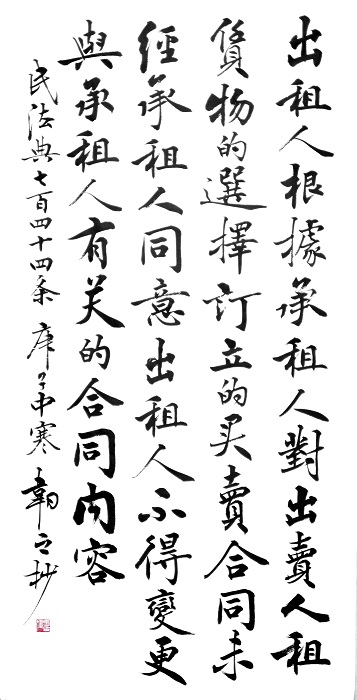 出租人根據承租人對出賣人租
賃物的選擇訂立的买賣合同未
經承租人同意出租人不得變更
與承租人有关的合同内容
民法典七百四十四条 庚子中寒 韌之抄